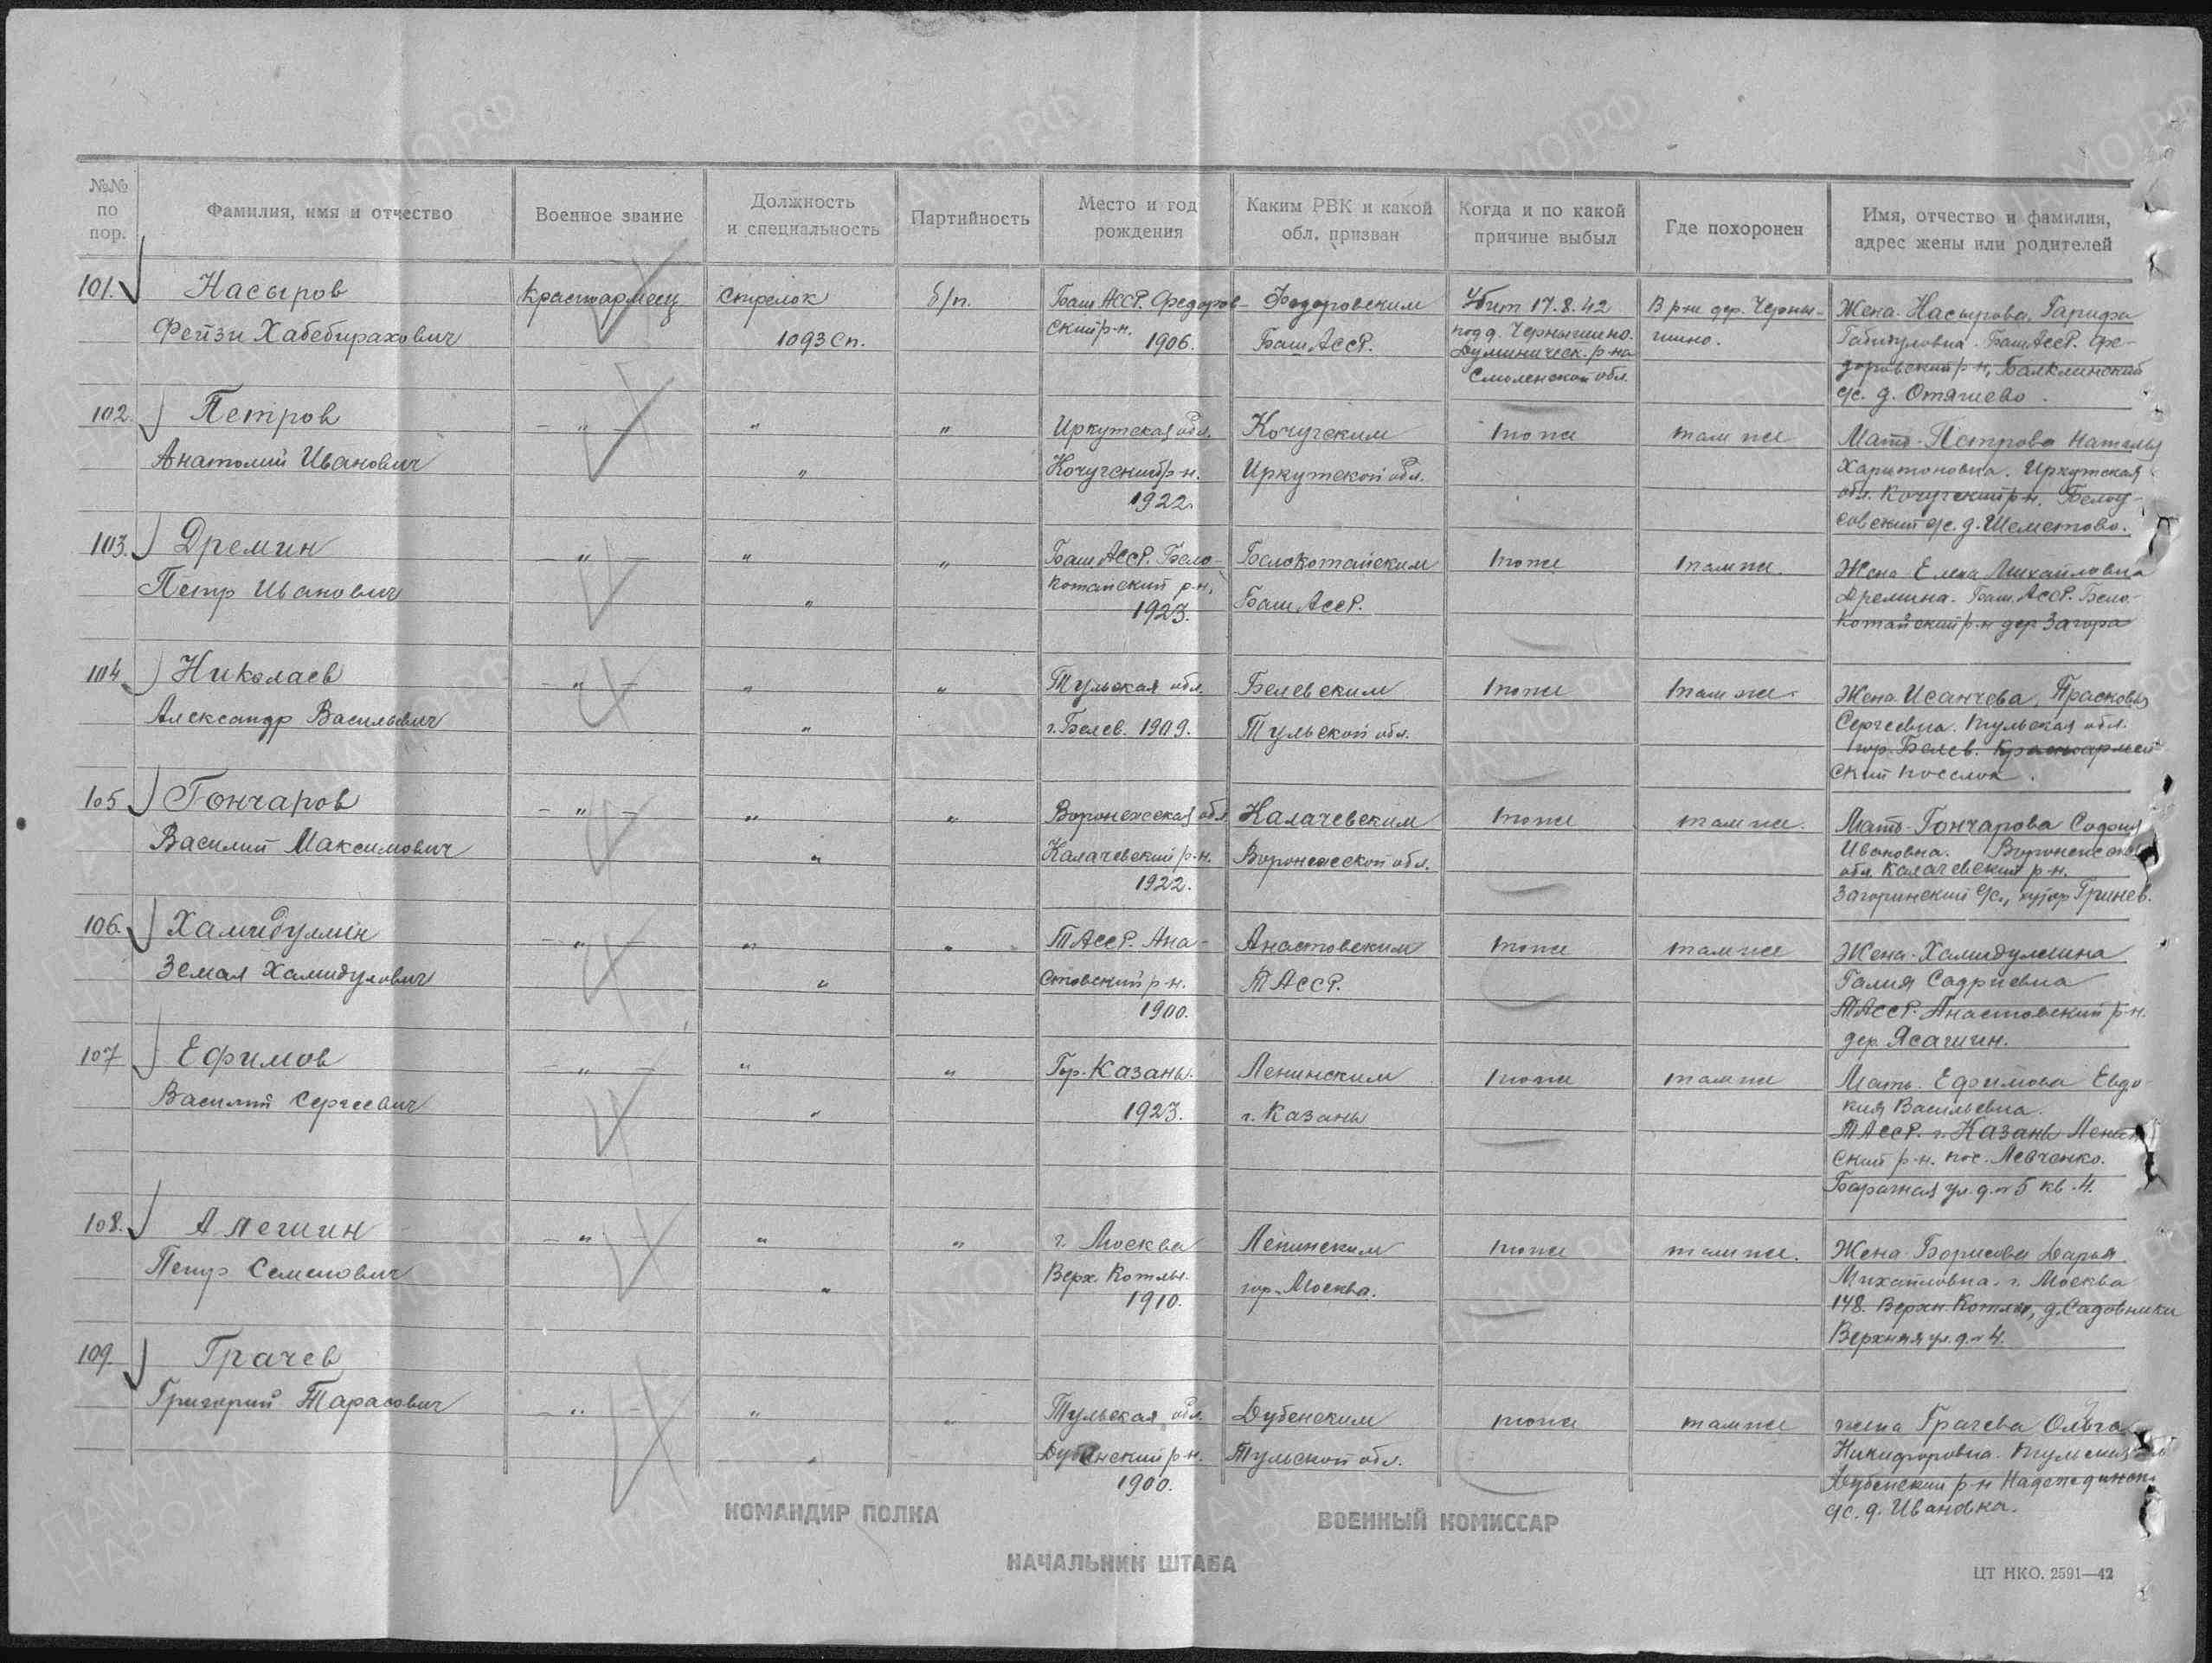 №№ по пор.
Фамилия, имя и отчество
Военное звание
Должность и специальность
Партийность
Место и год рождения
Каким РВК и какой обл. призван
Когда и по какой причине выбыл
Где похоронен
Имя, отчество и фамилия, адрес жены или родителей
101.
Насыров
Фейзи Хабебирахович
Красноармеец
Стрелок
1093 сп.
б/п.
Баш АССР. Федоров-
ский р-н.
1906.
Федоровским
Баш АССР.
Убит 17.8.42
под д. Чернышино.
Думиническ. р-на
Смоленской обл.
В р-не дер. Черны-
шино.
Жена. Насырова, Гарифа
БашАССР. Фе-
доровский р-н, Балклинский
с/с. д. Отяшево.
102.
Петров
Анатолий Иванович
— " —
"
"
"
Иркутская обл.
Качугский р-н.
1922.
Качугским
Иркутской обл.
тоже
там же
Мать-Петрова Наталья
Харитоновна. Иркутская
обл. Качугский р-н. Белоу-
совский с/с. д. Шеметово.
103.
Дремин
Петр Иванович
— " —
"
"
"
Баш АССР. Бело-
катайский р-н,
1923.
Белокатайским
Баш АССР.
тоже
там же.
Жена Елена Михайловна
Дремина. Баш. АССР. Бело-
катайский р-н дер Загора
104
Николаев
Александр Васильевич
— " —
"
"
"
Тульская обл.
г. Белев. 1909.
Белевским
Тульской обл.
тоже
там же.
Жена Исанчева, Прасковья
Сергеевна. Тульская обл.
гор. Белев. Красноармей
ский поселок.
105
Гончаров
Василий Максимович
— " —
"
"
"
Воронежская обл.
Калачевский р-н.
1922.
Калачевским
Воронежской обл.
тоже
там же.
Мать-Гончарова София
Ивановна. Воронежская
обл. Калачевский р-н.
Загоринский с/с., хутор Гринев.
106.
Хамидуллин
Земал Хамидулович
— " —
"
"
"
ТАССР. Апа-
стовский р-н.
1900.
Апастовским
ТАССР.
тоже
там же
Жена-Хамидуллина
Галия Садриевна
ТАССР. Апастовский р-н.
дер. Ясашин.
107
Ефимов
Василий Сергеевич
— " —
"
"
"
Гор. Казань.
1923.
Ленинским
г. Казань
тоже
там же
Мать. Ефимова Евдо-
кия Васильевна.
ТАССР. г. Казань Ленин
ский р-н. пос. Левченко.
Барачная ул. д. № 5 кв. 4.
108.
Алешин
Петр Семенович
— " —
"
"
"
г. Москва
Верх. Котлы.
1910.
Ленинским
гор. Москва.
тоже
там же.
Жена Борисова Дарья
Михайловна. г. Москва
148. Верхн. Котлы, д. Садовники
Верхняя ул. д. № 4.
109.
Грачев
Григорий Тарасович
— " —
"
"
"
Тульская обл.
Дубенский р-н.
1900.
Дубенским
Тульской обл.
тоже
там же
жена Грачева Ольга
Никифоровна. Тульская
Дубенский р-н Надеждинск.
с/с. д. Ивановка.
КОМАНДИР ПОЛКА
ВОЕННЫЙ КОМИССАР
НАЧАЛЬНИК ШТАБА
ЦТ НКО. 2591—42